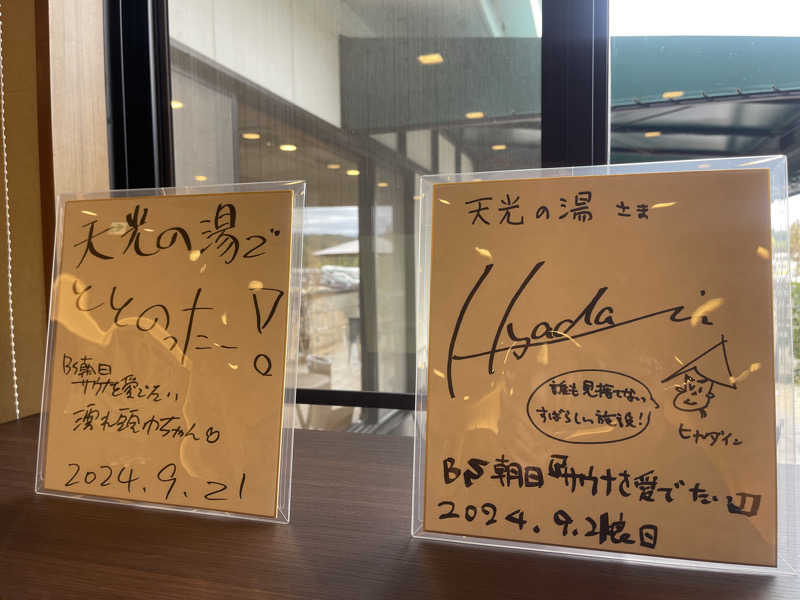 天光の湯で
ととのったー!
BS朝日
サウナを愛でたい
濡れ頭巾ちゃん
2024.9.21
天光の湯 さま
Hyadain
誰も見捨てない
すばらしい施設!!
ヒャダイン
BS朝日『サウナを愛でたい』
2024.9.21